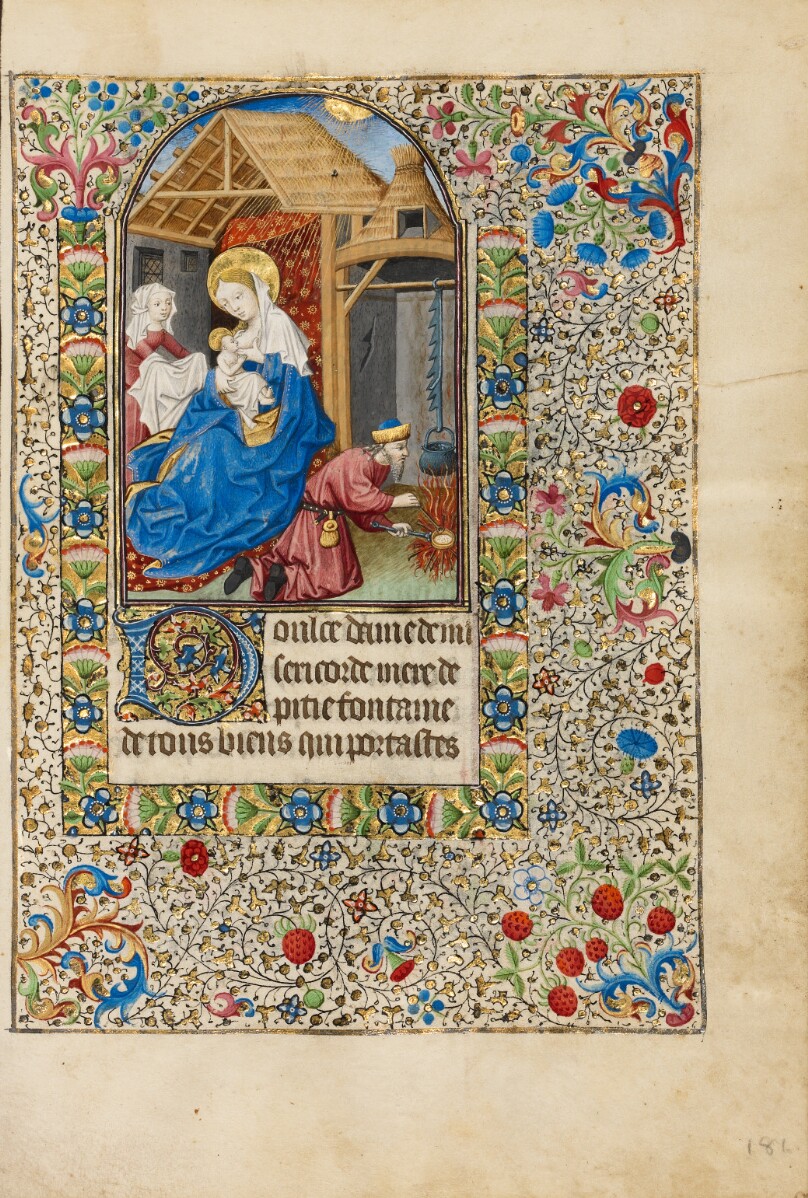 Doulce dame de mi
sericorde mere de
pitie fontaine
de tous biens qui portastes
181